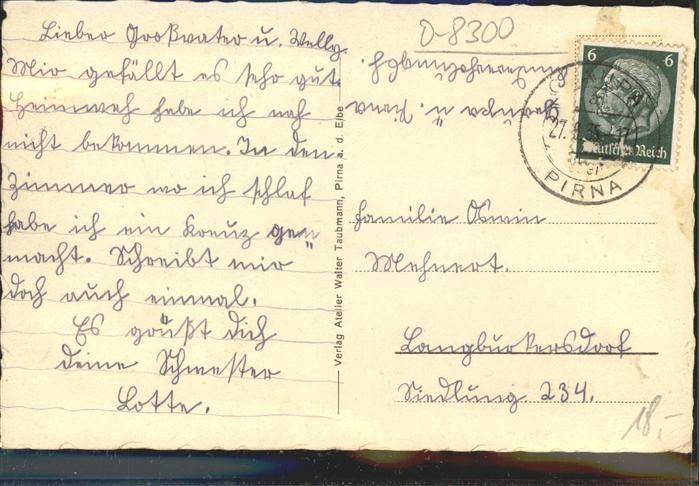 Lieber Großvater u. Welly.
Mir gefällt es sehr gut.
Heimweh habe ich noch
nicht bekommen. In den
Zimmer wo ich schlaf
habe ich ein Kreuz gen
macht. Schreibt mir
doch auch einmal.
Es grüßt dich
deine Schwester
Lotte.
Verlag Atelier Walter Taubmann, Pirna a. d. Elbe
D-8300
u. Pirna
6 6
Deutsches Reich
27.
PIRNA
Familie Oswin
Mehnert.
Langburkersdorf
Siedlung 234.
18,-